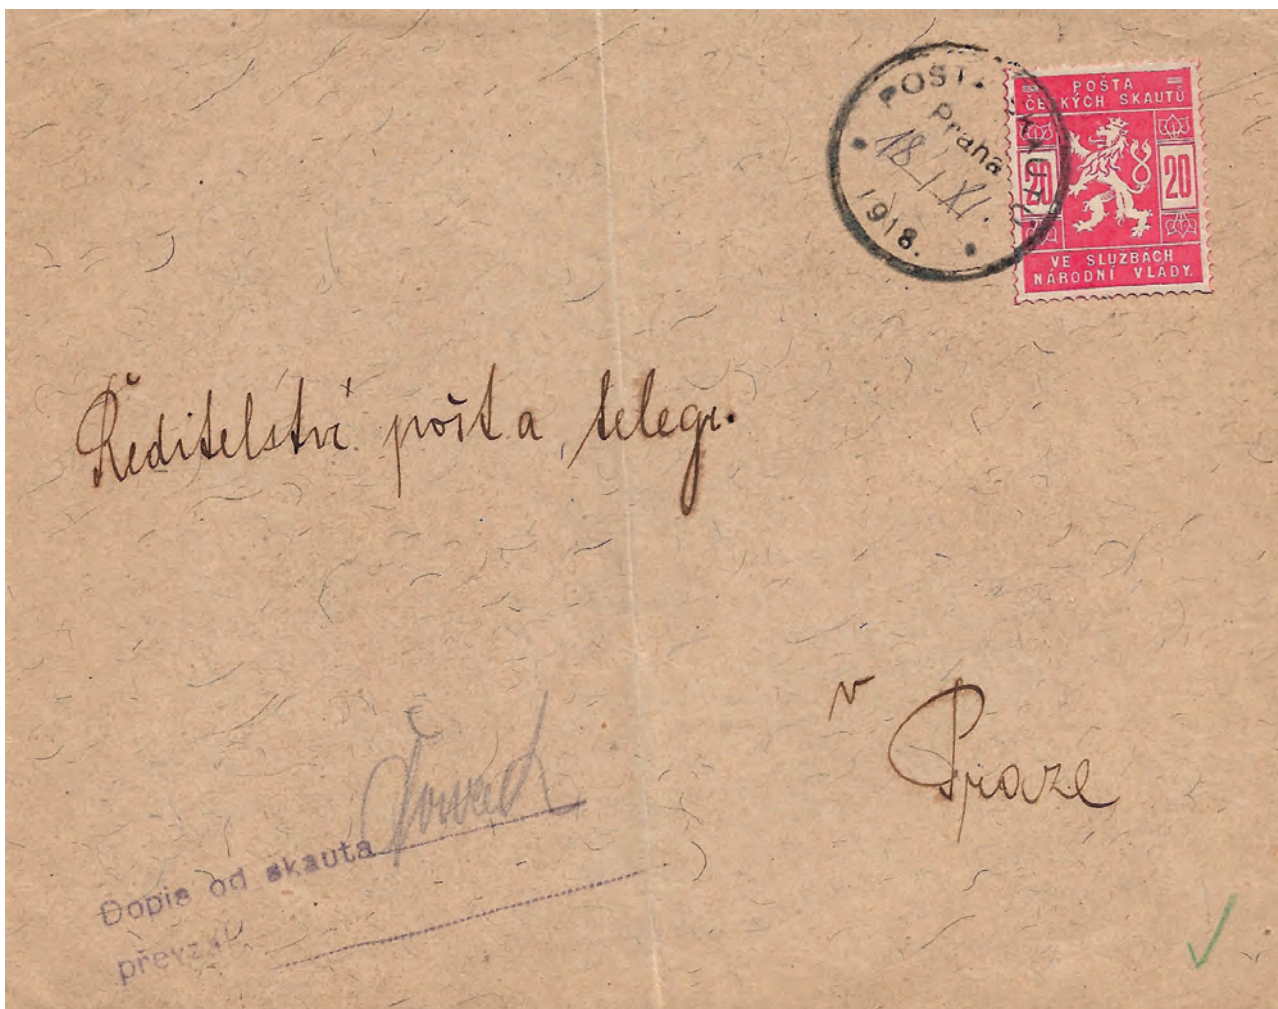 POŠTA SKAUTŮ
Praha
18./XI.
1918.
POŠTA
ČESKÝCH SKAUTŮ
20 20
VE SLUŽBÁCH
NÁRODNÍ VLÁDY.
Ředitelství pošt a telegr.
v Praze
Dopis od skauta
převzal